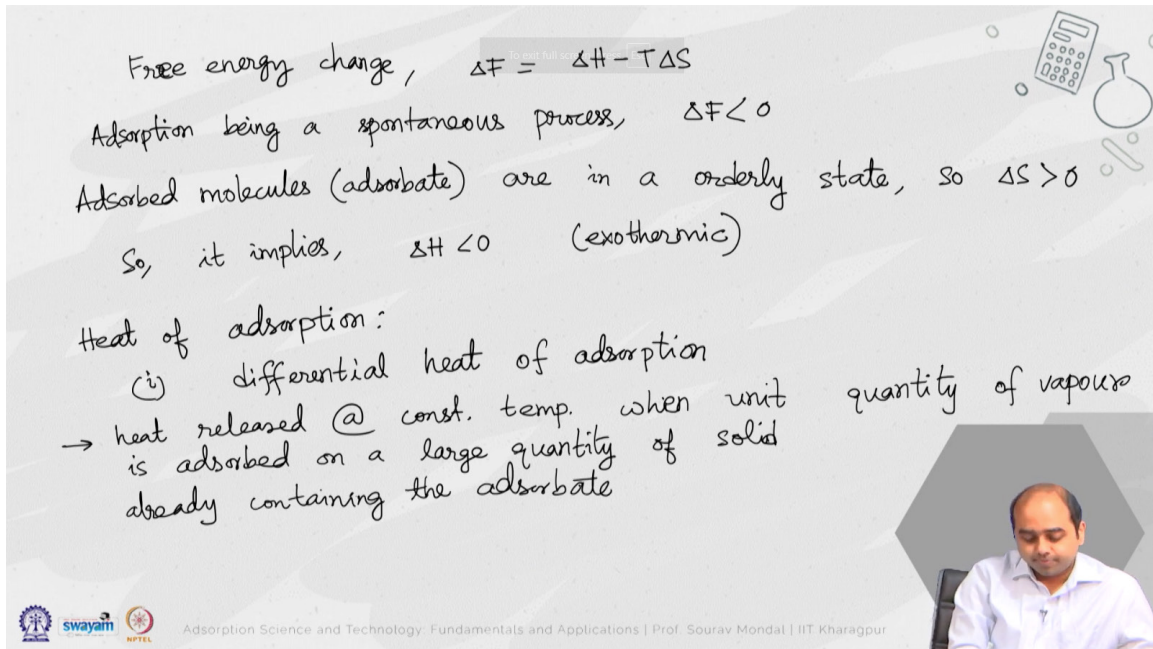 Free energy change, ΔF = ΔH - TΔS
Adsorption being a spontaneous process, ΔF < 0
Adsorbed molecules (adsorbate) are in a orderly state, so ΔS > 0
So, it implies, ΔH < 0 (exothermic)
Heat of adsorption:
(i) differential heat of adsorption
→ heat released @ const. temp. when unit quantity of vapour
is adsorbed on a large quantity of solid
already containing the adsorbate
swayam
NPTEL
Adsorption Science and Technology: Fundamentals and Applications | Prof. Sourav Mondal | IIT Kharagpur